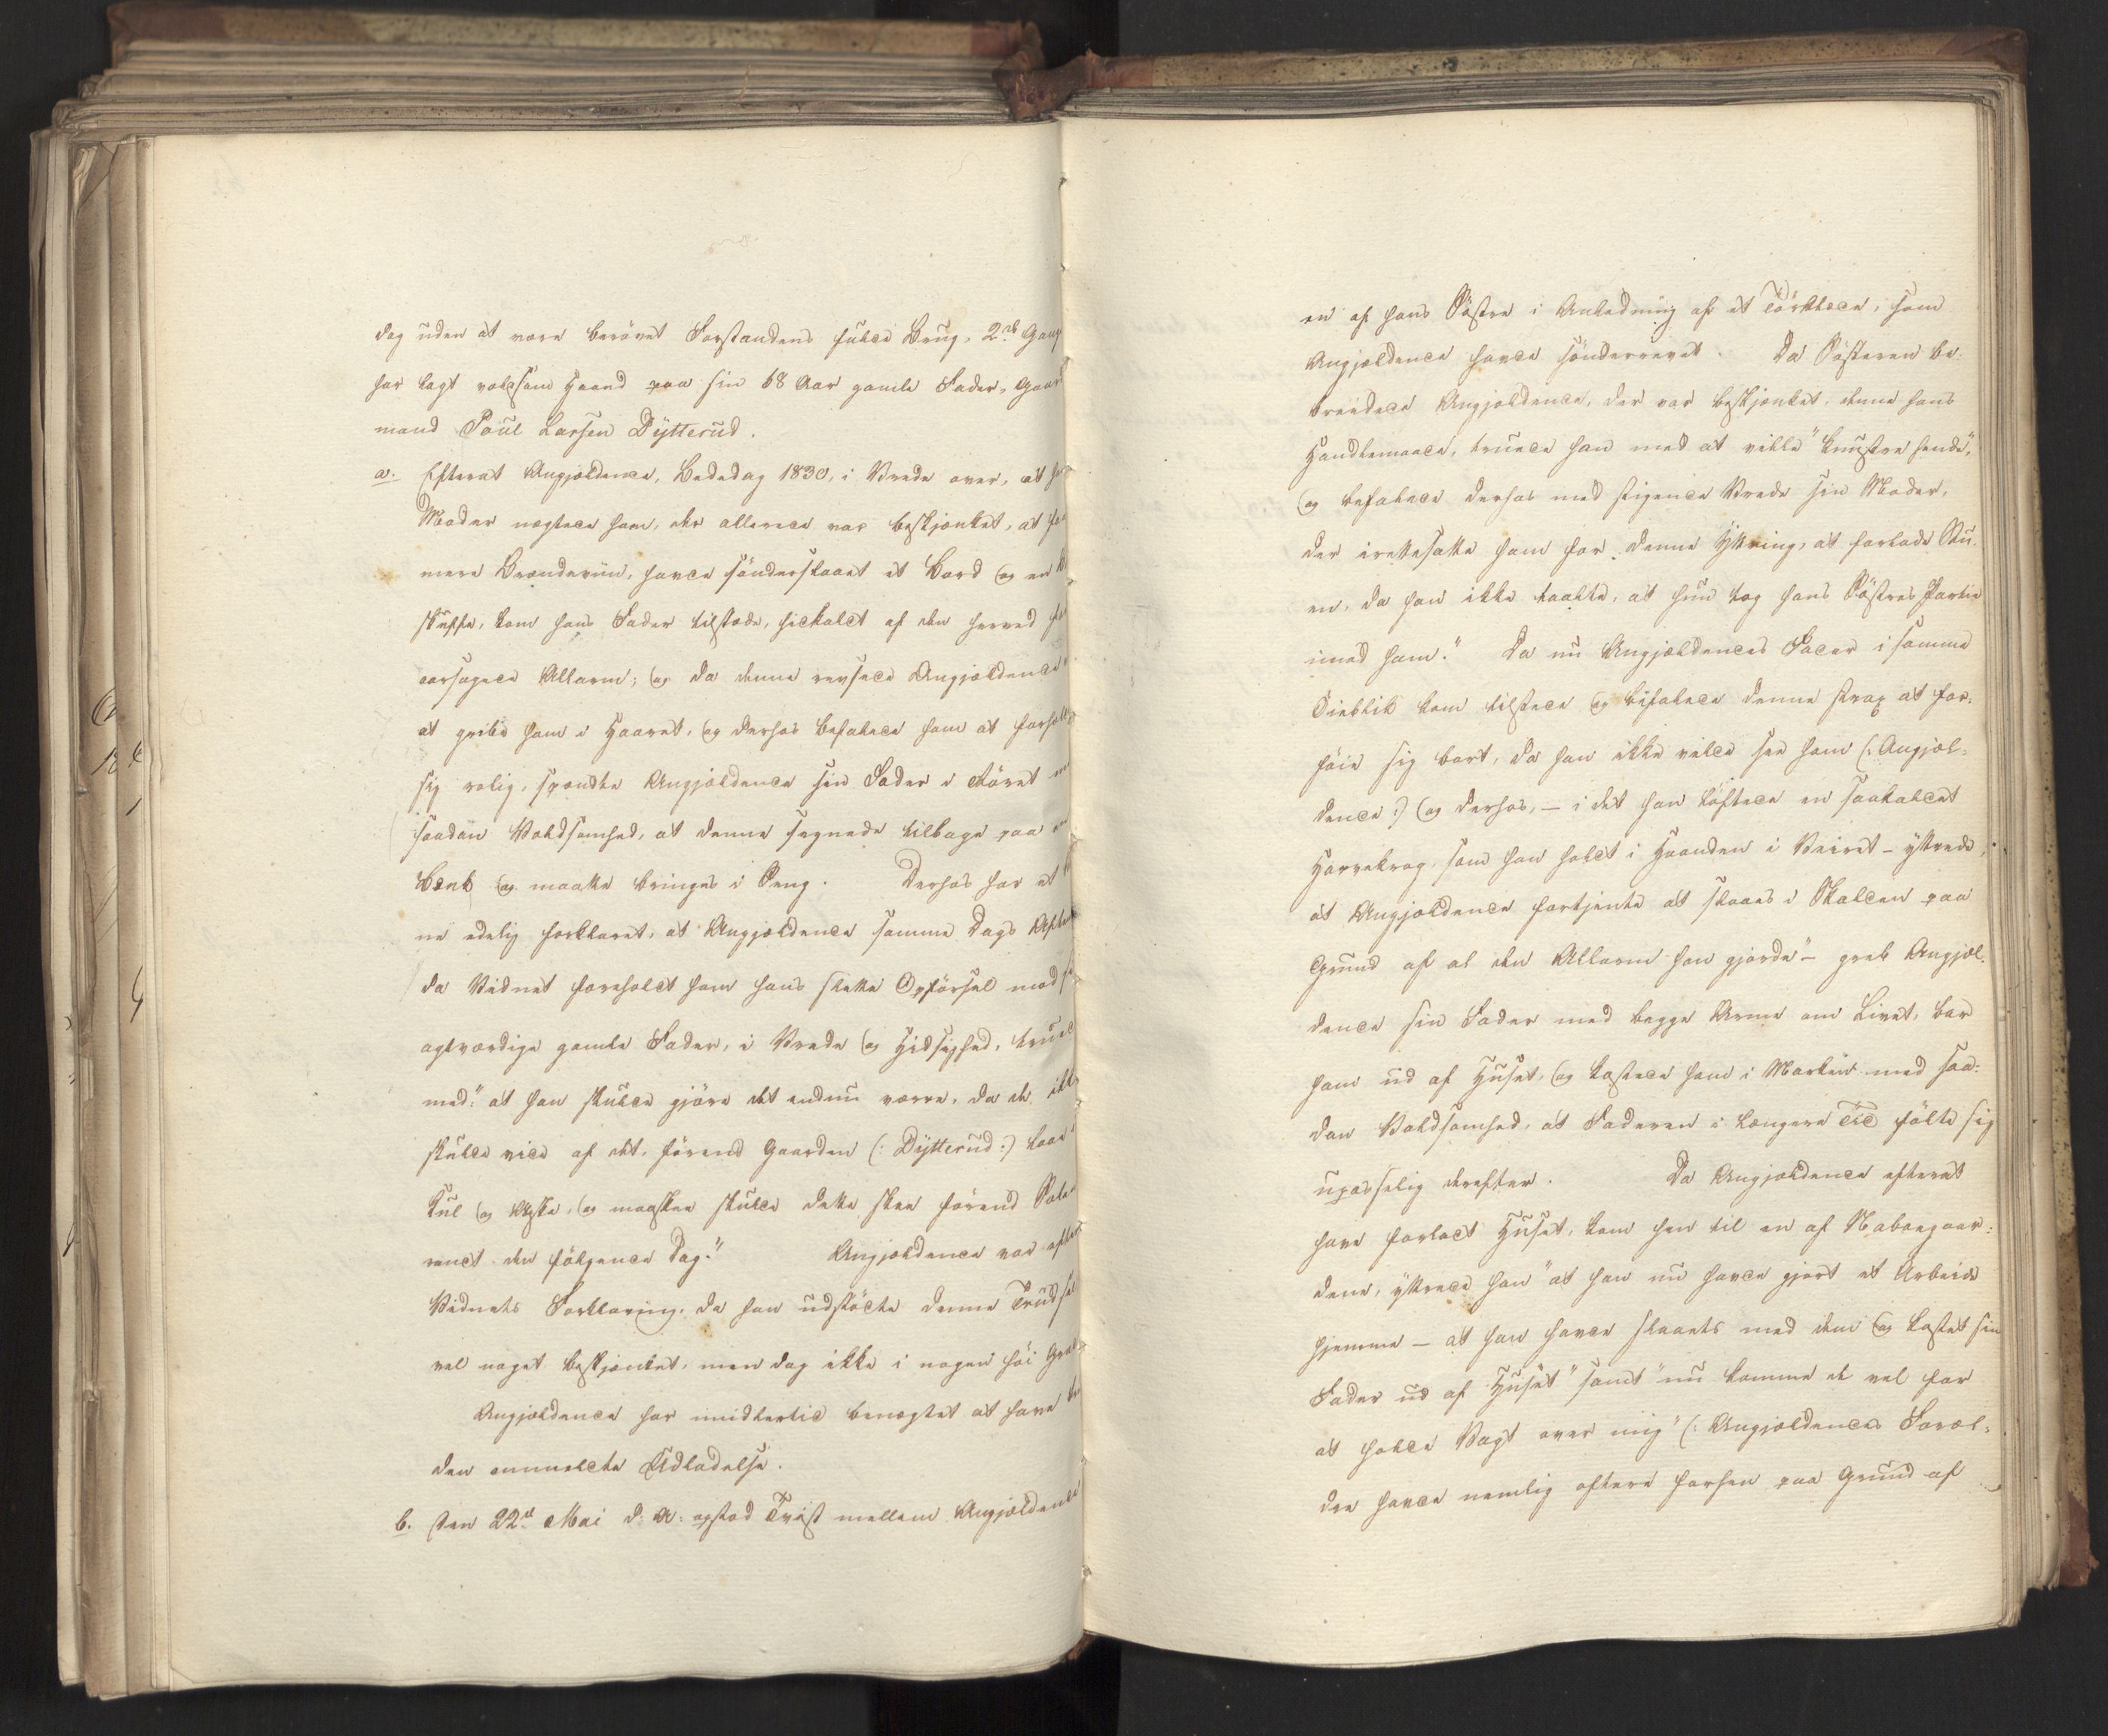 dog uden at være berövet Forstandens fulde Brug, 2de Gang
har lagt voldsom Haand paa sin 68 Aar gamle Fader, Gaard
mand Poul Larsen Dytterud.
a. Efterat Angjældende, Bededag 1830, i Vrede over, at
Moder nægtede ham, der allerede var beskjænket, at
mere Brændeviin, havde sönderslaaet et Bord og en
skuffe, kom hans Fader tilstæde, hidkaldt af den herved
aarsagede Allarm; og da denne revsede Angjældende
at gribe ham i Haaret, og derhos befalede ham at forholde
sig rolig, spændte Angjældende sin Fader i Låret
saadan Voldsomhed, at denne segnede tilbage paa
Bænk og maatte bringes i Seng. Derhos har et
ne edelig forklaret, at Angjældende samme Dags Aften
da Vidnet foreholdt ham hans slette Opförsel mod
agtværdige gamle Fader, i Vrede og Hidsighed, truede
med: at han skulde gjöre det endnu værre, da de ikke
skulde vide af det, förend Gaarden (: Dytterud :) laae i
Kul og Aske, og maaskee skulde dette skee förend Solen
randt den fölgende Dag." Angjældende var efter
Vidnets Forklaring, da han udstödte denne Trudsel
vel noget beskjænket, men dog ikke i nogen höi Grad
Angjældende har imidlertid benægtet at have
den anmeldte Udladelse.
b. Den 22de Mai d: A: opstod Tvist mellem Angjældende
en af hans Söstre i Anledning af et Törklæde, som
Angjældende havde sönderrevet. Da Sösteren be-
breidede Angjældende, der var beskjænket, denne hans
Handlemaade, truede han med at ville "knustre hende",
og befalede derhos med stigende Vrede sin Moder,
der irettesatte ham for denne Yttring, at forlade Stu-
en, da han ikke taalte, at hun tog hans Söstres Partie
imod ham." Da nu Angjældendes Fader i samme
Öieblik kom tilstede og befalede denne strax at for-
föie sig bort, da han ikke vilde see ham (: Angjæl-
dende :) og derhos, – i det han löftede en saakaldet
Harvekrog, som han holdt i Haanden i Veiret – yttrede,
at Angjældende fortjente at slaaes i Skallen paa
Grund af al den Allarm han gjorde" – greb Angjæl-
dende sin Fader med begge Arme om Livet, bar
ham ud af Huset, og kastede ham i Marken med saa-
dan Voldsomhed, at Faderen i længere Tid fölte sig
upasselig derefter. Da Angjældende efterat
have forladt Huset, kom hen til en af Nabogaar-
dene, yttrede han "at han nu havde gjort et Arbeide
hjemme – at han havde slaaets med dem og kastet sin
Fader ud af Huset" samt "nu komme de vel for
at holde Vagt over mig" (: Angjældendes Foræl-
dre havde nemlig oftere forhen paa Grund af